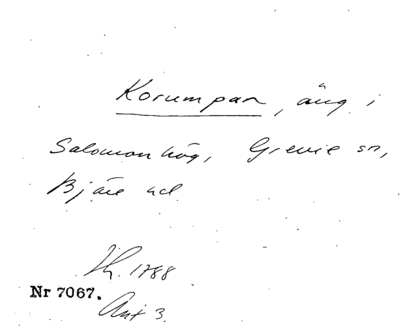 Korumpan, äng i
Salomonhög, Grevie sn,
Bjäre hd
1788
Nr 7067.
Akt 3.